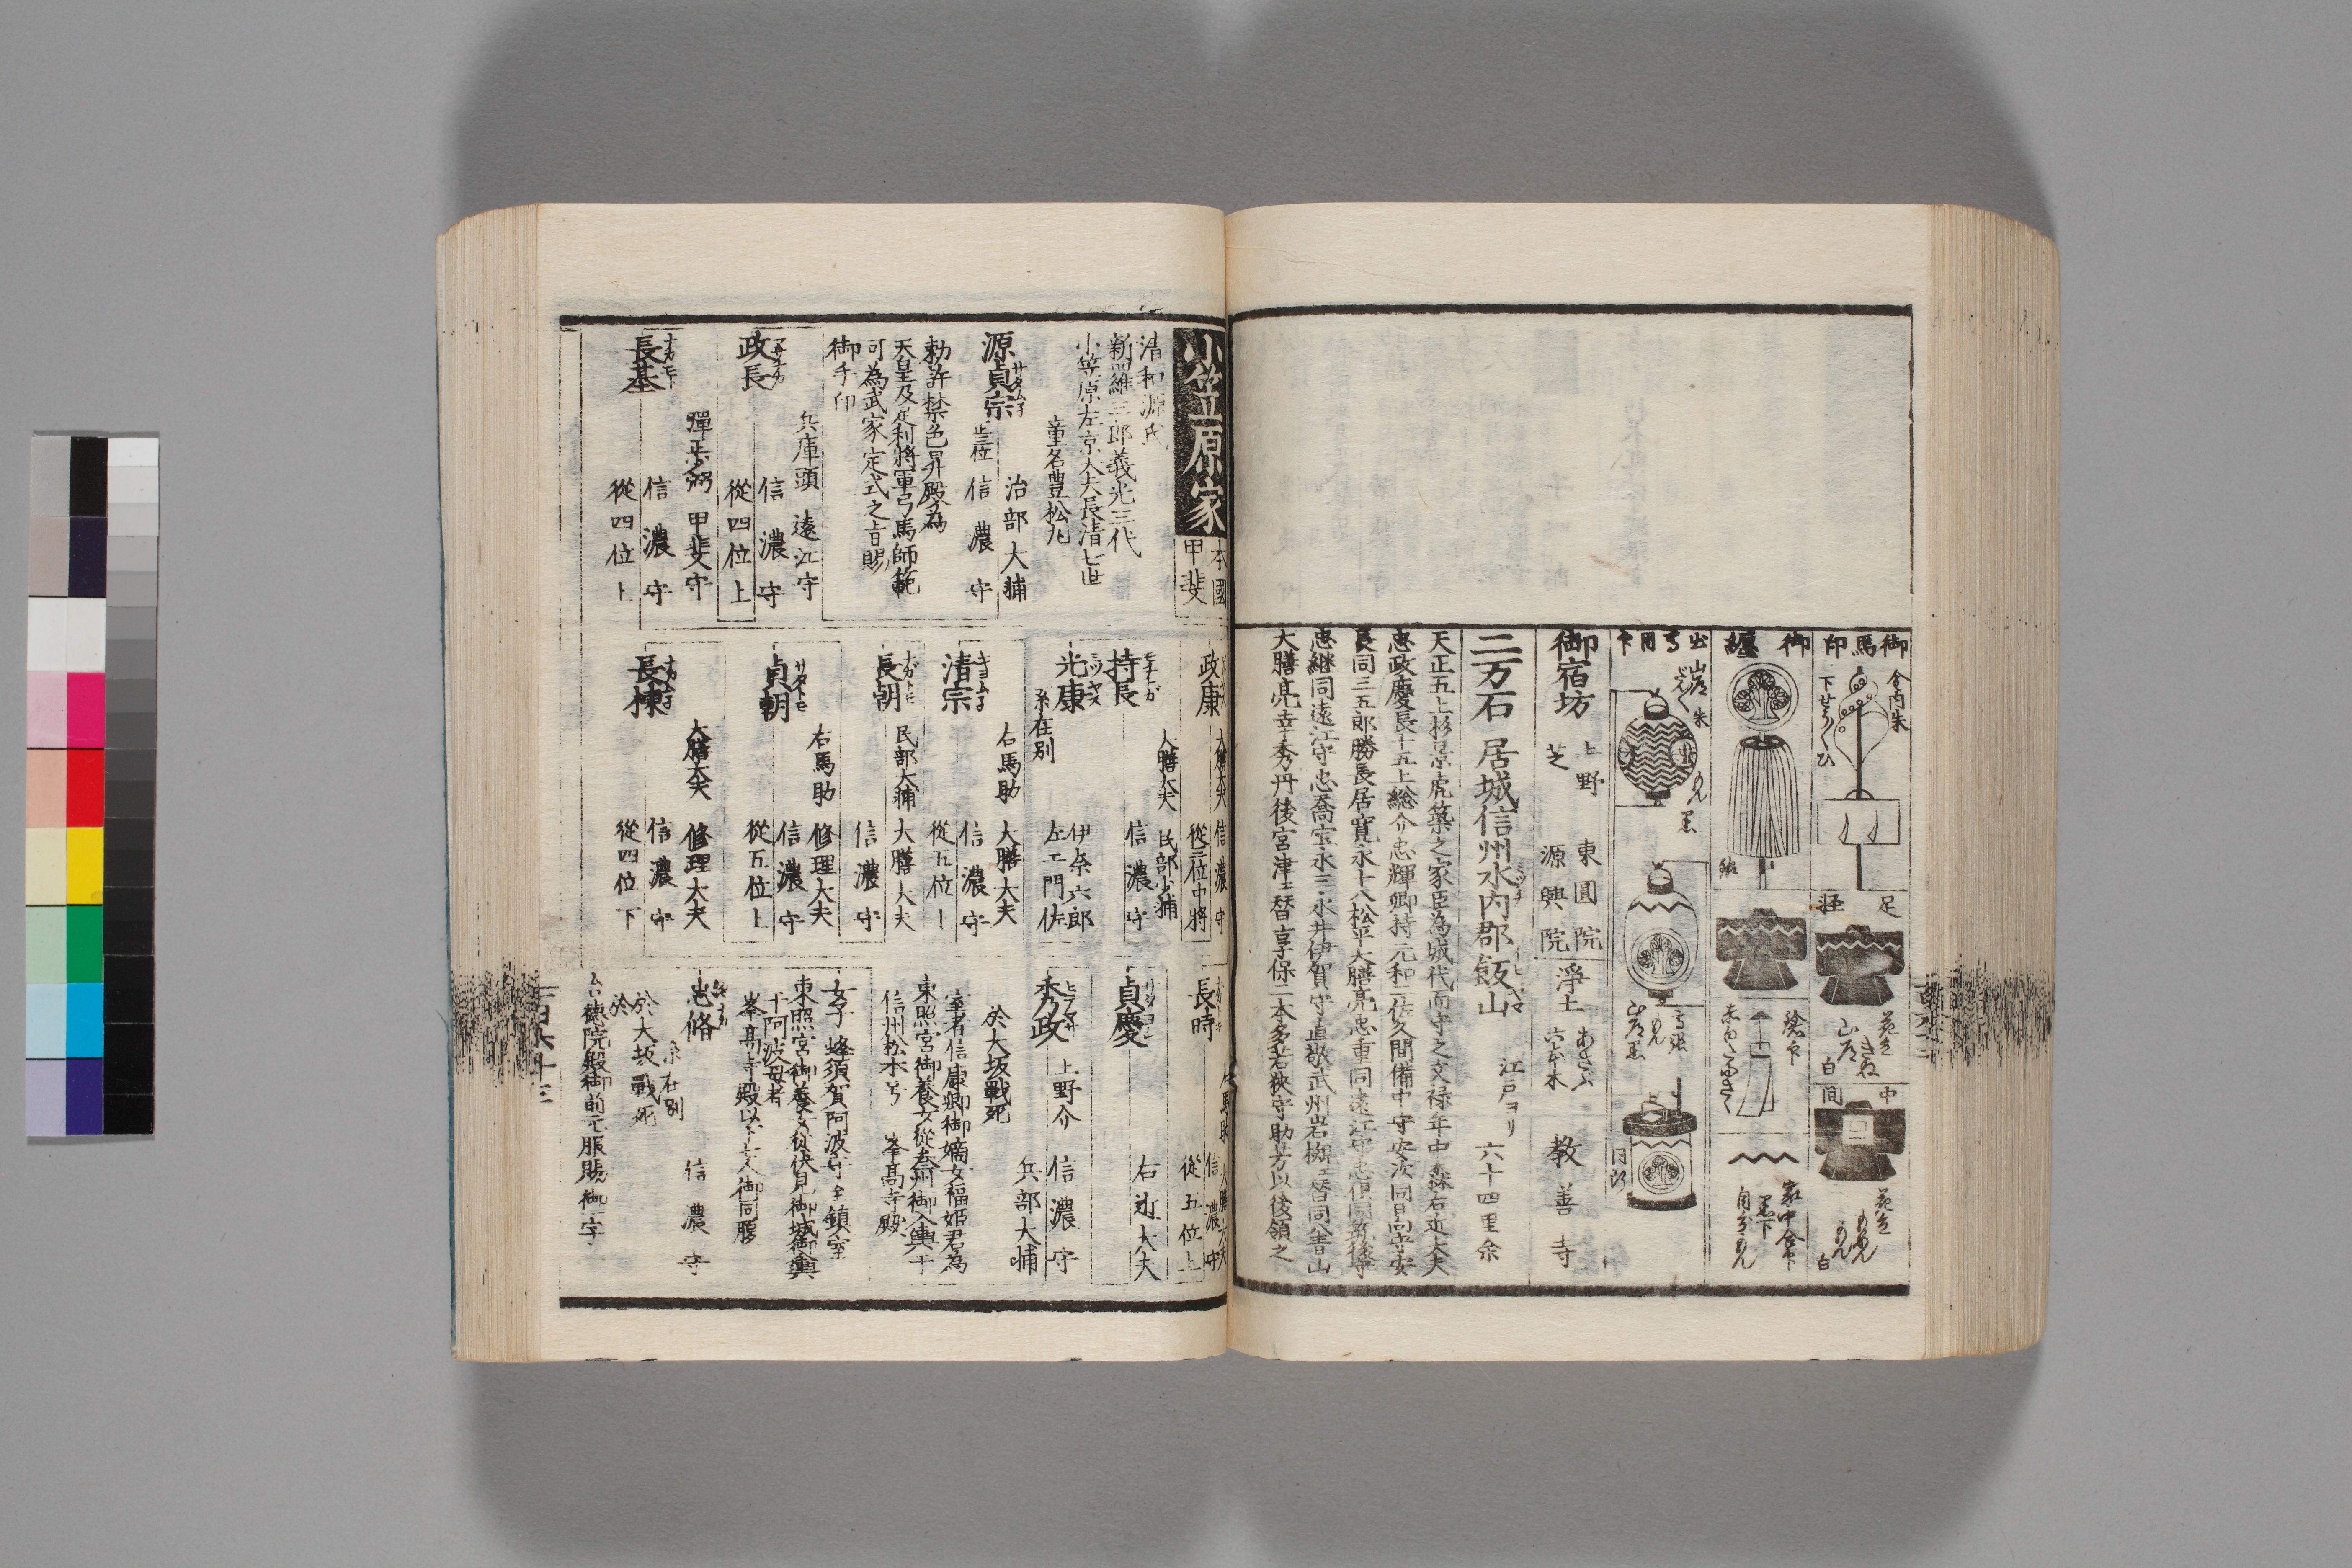 御馬印
金内朱
下せうくひ
足軽
花色
白
中間
花色
白
御纏
鎗印
家中合印
黒下
自分もん
出馬用印
朱
高張
御宿坊
上野
東圓院
芝
源興院
浄土
あさぶ
六本木
教善寺
二万石
居城信州水内郡飯山
江戸ヨリ
六十四里余
天正五上杉景虎築之家臣為城代而守之文禄年中森右近大夫
忠政慶長十五上総介忠輝卿持元和二佐久間備中守安次同日向守安
長同三五郎勝長居寛永十八松平大膳亮忠重同遠江守忠倶同筑後守
忠継同遠江守忠喬宝永三永井伊賀守直敬武州岩槻ヱ替同八青山
大膳亮幸秀丹後宮津ヱ替享保二本多若狭守助芳以後領之
小笠原家
本國
甲斐
清和源氏
新羅三郎義光三代
小笠原左京大夫長清七世
童名豊松丸
源貞宗
治部大輔
正三位
信濃守
勅許禁色昇殿為
天皇及足利將軍弓馬師範
可為武家定式之旨賜
御手印
政長
兵庫頭
遠江守
信濃守
從四位上
長基
彈正弼
甲斐守
信濃守
從四位上
政康
大膳大夫
信濃守
從三位中將
持長
大膳大夫
民部少輔
信濃守
光康
系在別
伊奈六郎
左エ門佐
清宗
右馬助
大膳大夫
信濃守
從五位上
長朝
民部大輔
大膳大夫
信濃守
貞朝
右馬助
修理大夫
信濃守
從五位上
長棟
大膳大夫
修理大夫
信濃守
從四位下
長時
右馬助
大膳大夫
信濃守
從五位上
貞慶
右近大夫
秀政
上野介
信濃守
兵部大輔
於大坂戰死
室者信康卿御嫡女福姫君為
東照宮御養女從泰州御入輿于
信州松本号
峯高寺殿
女子
蜂須賀阿波守至鎮室
東照宮御養女從伏見御城御入輿
于阿波母者
峯高寺殿以下七人御同腹
忠脩
系在別
信濃守
於大坂戰死
於
台徳院殿御前元服賜御一字